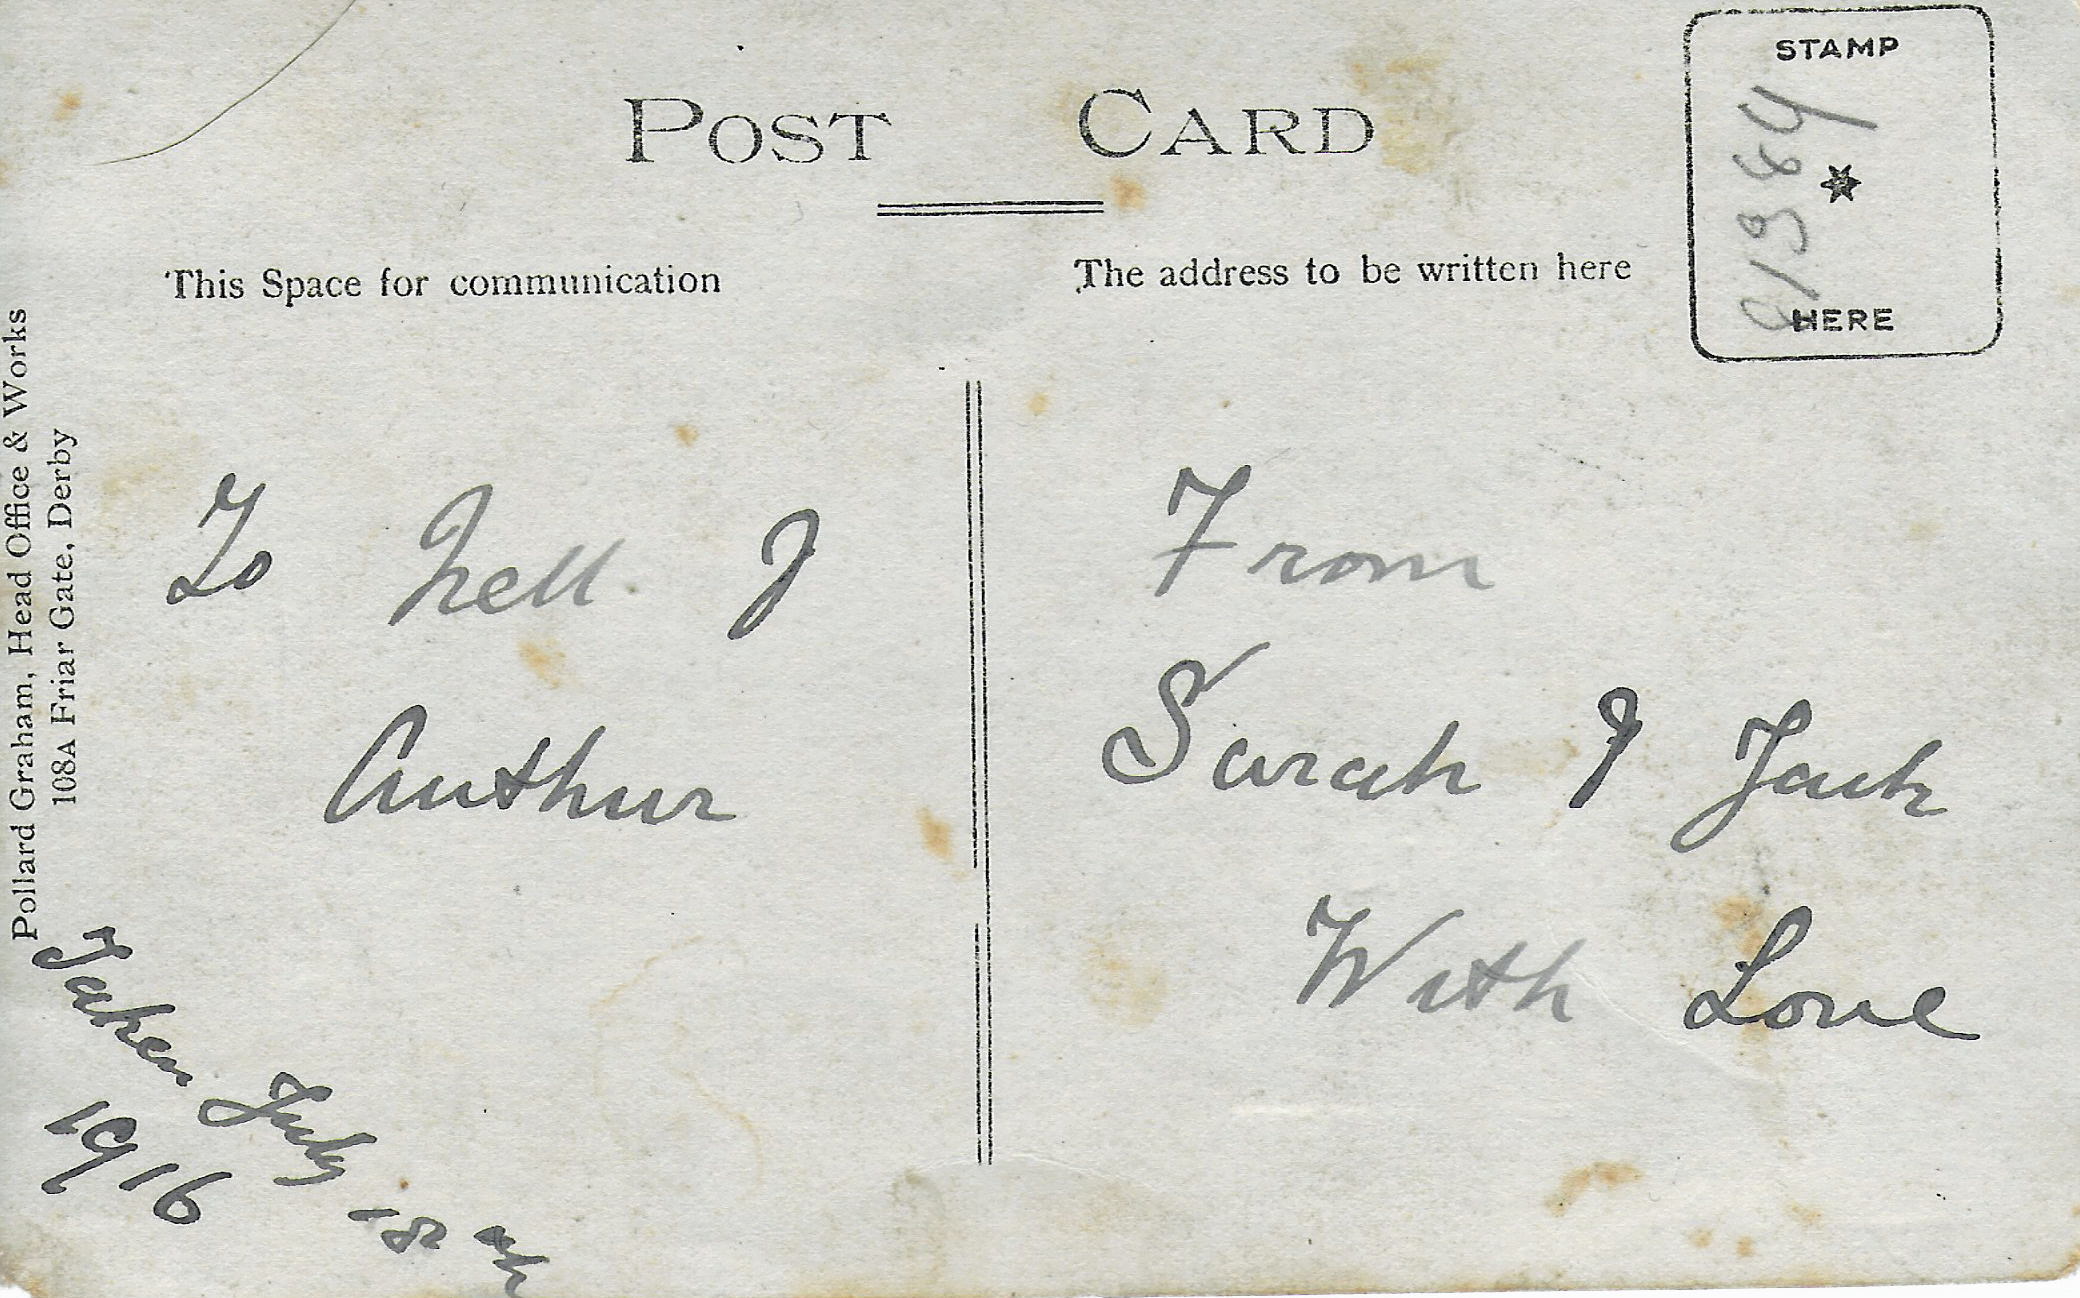 POST CARD
STAMP
HERE
This Space for communication
The address to be written here
Pollard Graham, Head Office & Works
108A Friar Gate, Derby
To Nell &
Arthur
From
Sarah & Jack
With Love
Taken July 18th
1916